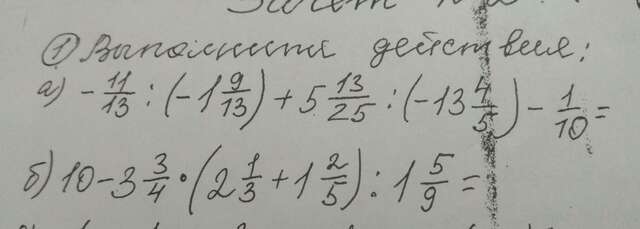 ① Выполнить действия:
а) -11/13 : (-1 9/13) + 5 13/25 : (-13 4/5) - 1/10 =
б) 10 - 3 3/4 · (2 1/3 + 1 2/5) : 1 5/9 =